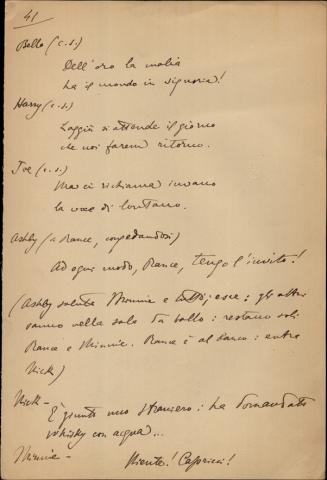 41
Bello (c.s.)
Dell'oro la malia
ha il mondo in signoria!
Harry (c.s.)
Laggiù si attende il giorno
che noi farem ritorno.
Joe (c.s.)
Ma ci richiama invano
la voce di lontano.
Ashby (a Rance, congedandosi)
Ad ogni modo, Rance, tengo l'invito!
(Ashby saluta Minnie e tutti; esce: gli altri
vanno nella sala da ballo: restano soli
Rance e Minnie. Rance è al banco: entra
Nick)
Nick —
È giunto uno straniero: ha domandato
whisky con acqua...
Minnie —
Niente! Capricci!